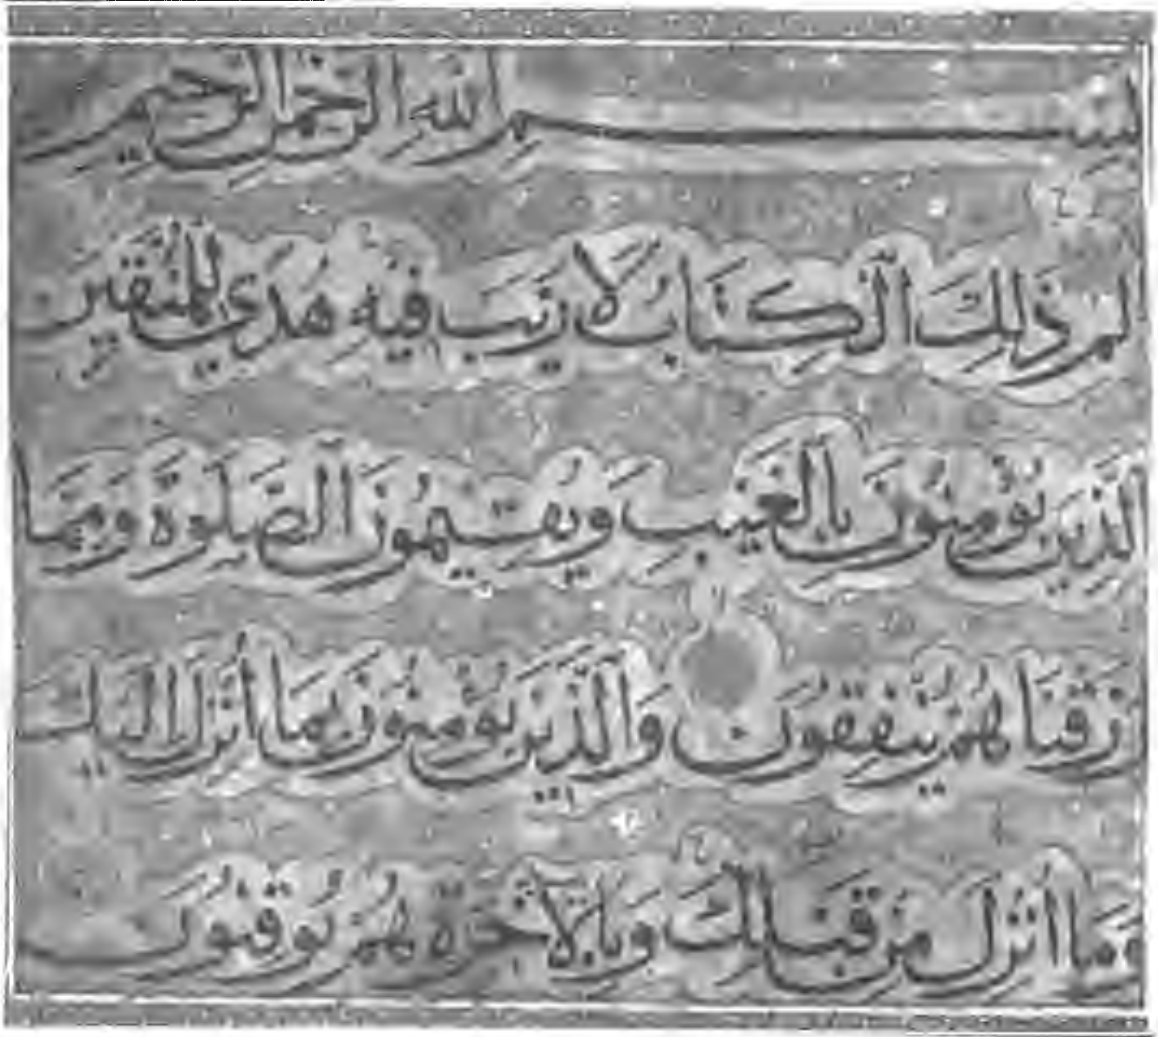 بِسْمِ اللهِ الرَّحْمٰنِ الرَّحِيمِ
الم ذَلِكَ الْكِتَابُ لَا رَيْبَ فِيْهِ هُدًى لِلْمُتَّقِينَ
الَّذِينَ يُؤْمِنُونَ بِالْغَيْبِ وَيُقِيمُونَ الصَّلوةَ وَمِمَّا
رَزَقْنَا هُمْ يُنْفِقُونَ وَالَّذِينَ يُؤْمِنُونَ بِمَا أُنْزِلَ إِلَيْكَ
وَمَا أُنْزِلَ مِنْ قَبْلِكَ وَبِالْآخِرَةِ هُمْ يُوقِنُونَ